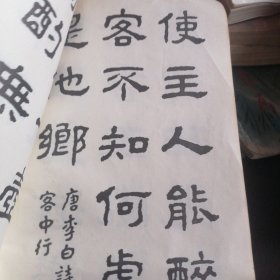 使主人能醉
客不知何處
是他鄉
唐李白詩
客中行